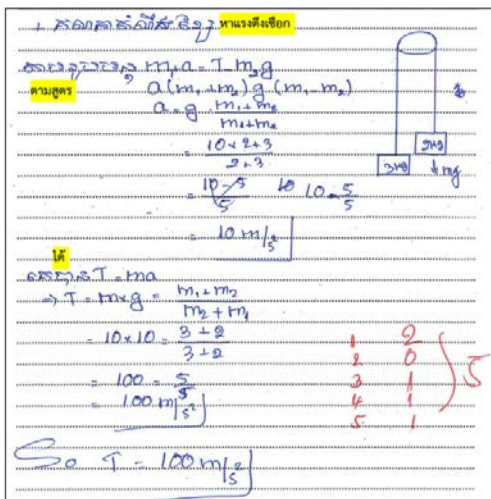 + គណនាតំណឹងខ្សែ หาแรงดึงเชือก
តាមរូបមន្ត m₁a = T - m₂g
ตามสูตร a(m₁+m₂) g (m₁-m₂)
a = g · m₁+m₂ / m₁+m₂
= 10×2+3 / 2+3
= 10-5 / 5 10 10 5/5
= 10 m/s²
3kg 2kg mg
ได้
គេបាន T = ma
⇒ T = m×g = m₁+m₂ / m₂+m₁
= 10×10 = 3+2 / 3+2
= 100 = 5/5
= 100 m/s²
1 2
2 0
3 1
4 1
5 1
5
So T = 100 m/s²